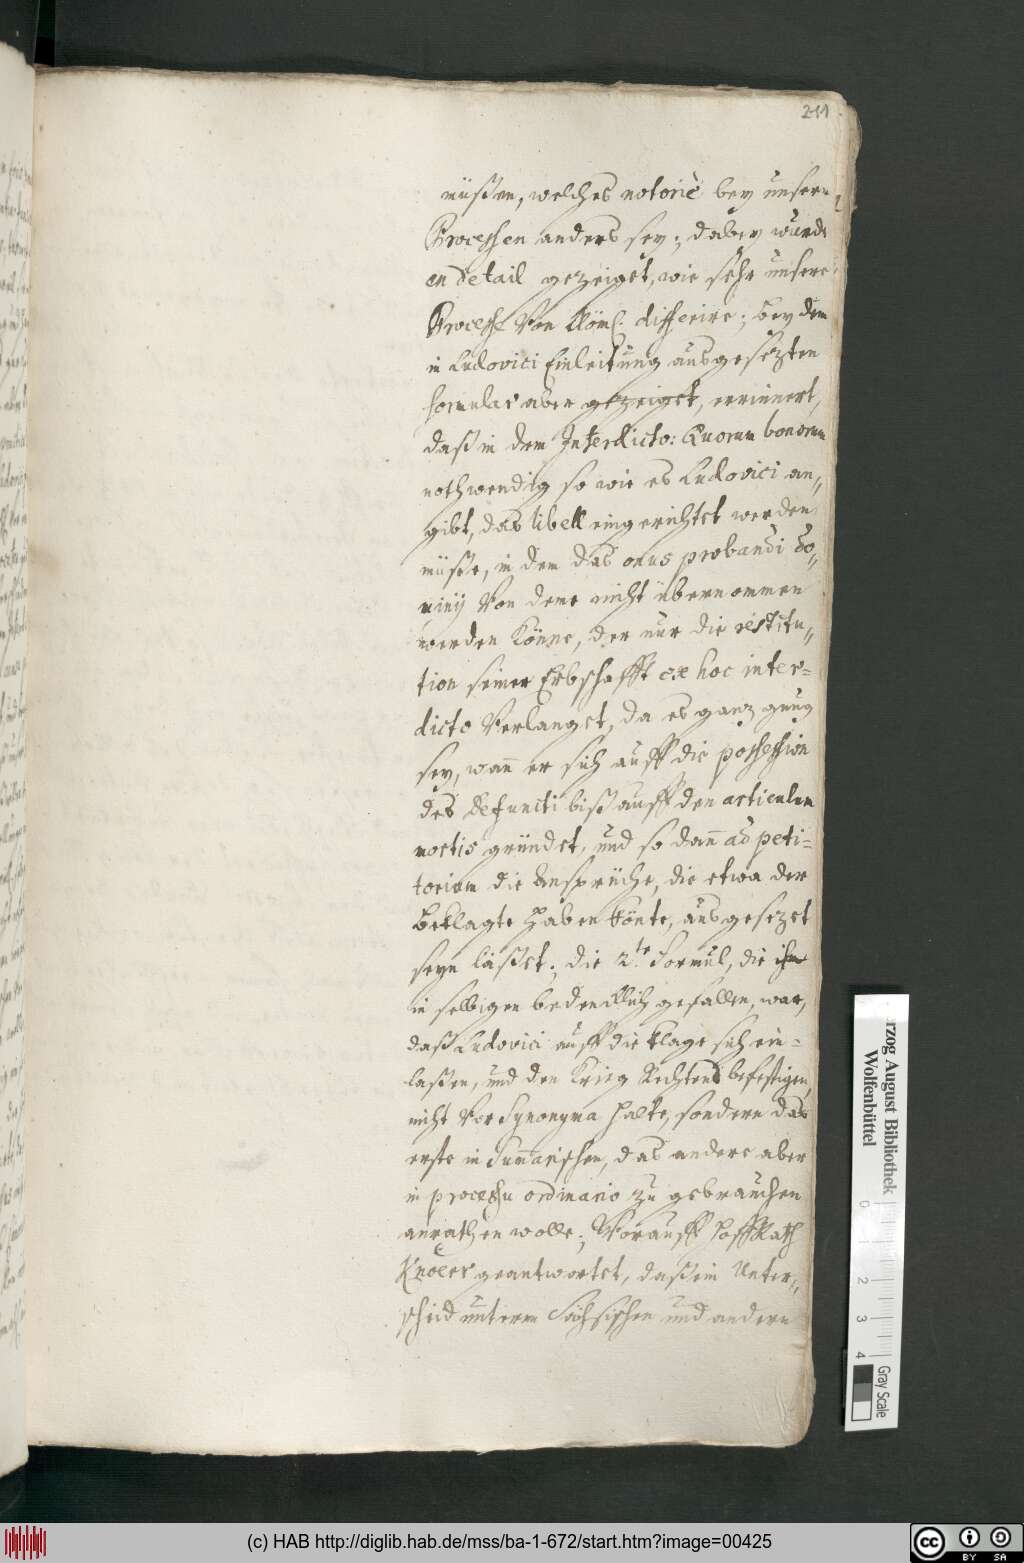 211
müßen, welches notoriè bey unsern
Processen anders sey; dabey wurde
en detail gezeiget, wie sehr unsere
Processe von Röm. differire; bey dem
in Ludovici Einleitung ausgesezten
formulas aber gezeiget, errinnert,
daß in dem Interdicto: Quorum bonorum
nothwendig so wie es Ludovici an„
gibt, das libell eingerichtet werden
müße, in dem das onus probandi do„
minij von deme nicht übernommen
werden könne, der nur die restitu„
tion seiner Erbschafft ex hoc inter=
dicto verlanget, da es ganz gnug
sey, wan̄ er sich auff die possession
des defuncti biß auff den articulum
mortis gründet, und so dan̄ ad peti=
torium die Ansprüche, die etwa der
Beklagte haben könte, ausgesezet
seyn läßet; die 2.te Formul, die
in selbigen bedencklich gefallen, war,
daß Ludovici auff die klage sich ein=
laßen, und den Krieg Rechtens befestigen,
nicht vor Synonyma halte, sondern das
erste in Sum̄arischen, das andere aber
in processu ordinario zu gebrauchen
anrathen wolle; Worauff Hoff Rath
Knörr geantwortet, daß ein Unter„
scheid unterm Sächsischen und andern
Herzog August Bibliothek
Wolfenbüttel
0 2 3 4
Gray Scale
(c) HAB http://diglib.hab.de/mss/ba-1-672/start.htm?image=00425
cc BY SA